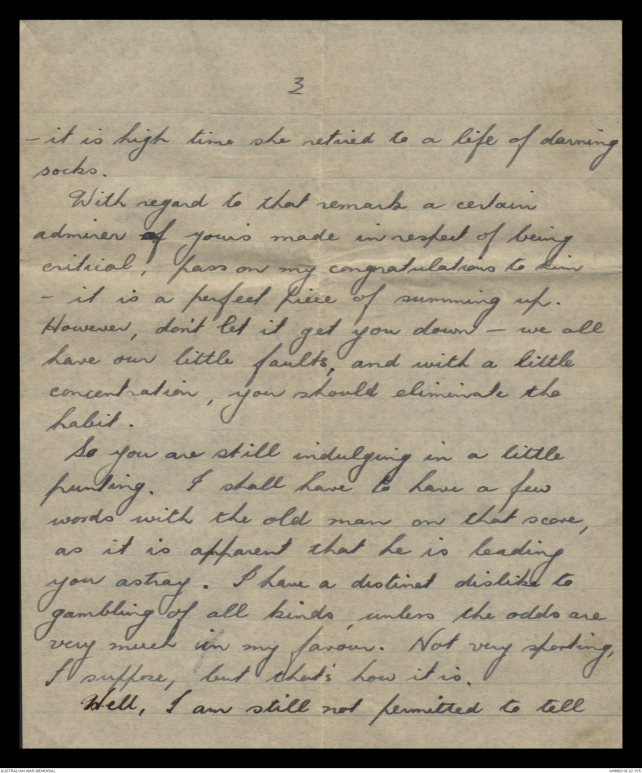 3
- it is high time she retired to a life of darning
socks.
With regard to that remark a certain
admirer of yours made in respect of being
critical, pass on my congratulations to him
- it is a perfect piece of summing up.
However, don't let it get you down - we all
have our little faults, and with a little
concentration, you should eliminate the
habit.
So you are still indulging in a little
punting. I shall have to have a few
words with the old man on that score,
as it is apparent that he is leading
you astray. I have a distinct dislike to
gambling of all kinds, unless the odds are
very much in my favour. Not very sporting,
I suppose, but that's how it is.
Well, I am still not permitted to tell
AUSTRALIAN WAR MEMORIAL